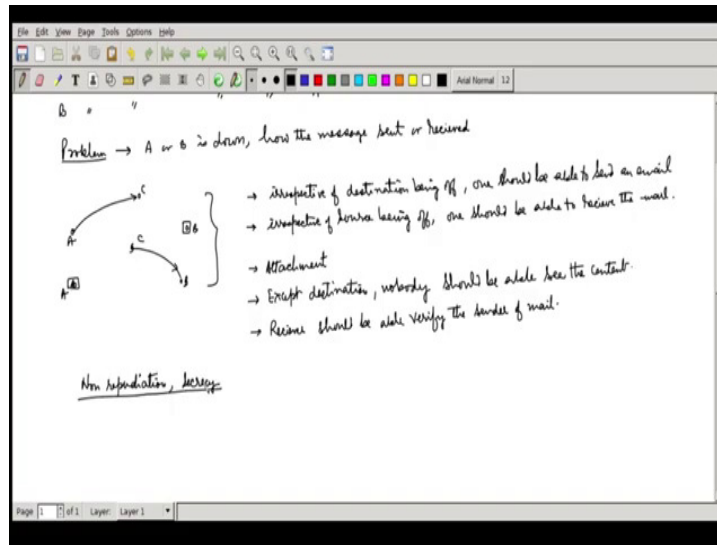 File Edit View Page Tools Options Help
Arial Normal 12
B " " " " "
Problem → A or B is down, how the message sent or recieved
A C
→ irrespective of destination being off, one should be able to send an email
→ irrespective of source being off, one should be able to recieve the mail.
B B
C B
A A
→ Attachment
→ Except destination, nobody should be able see the content.
→ Reciever should be able verify the sender of mail.
Non repudiation, Secrecy
Page 1 of 1 Layer: Layer 1